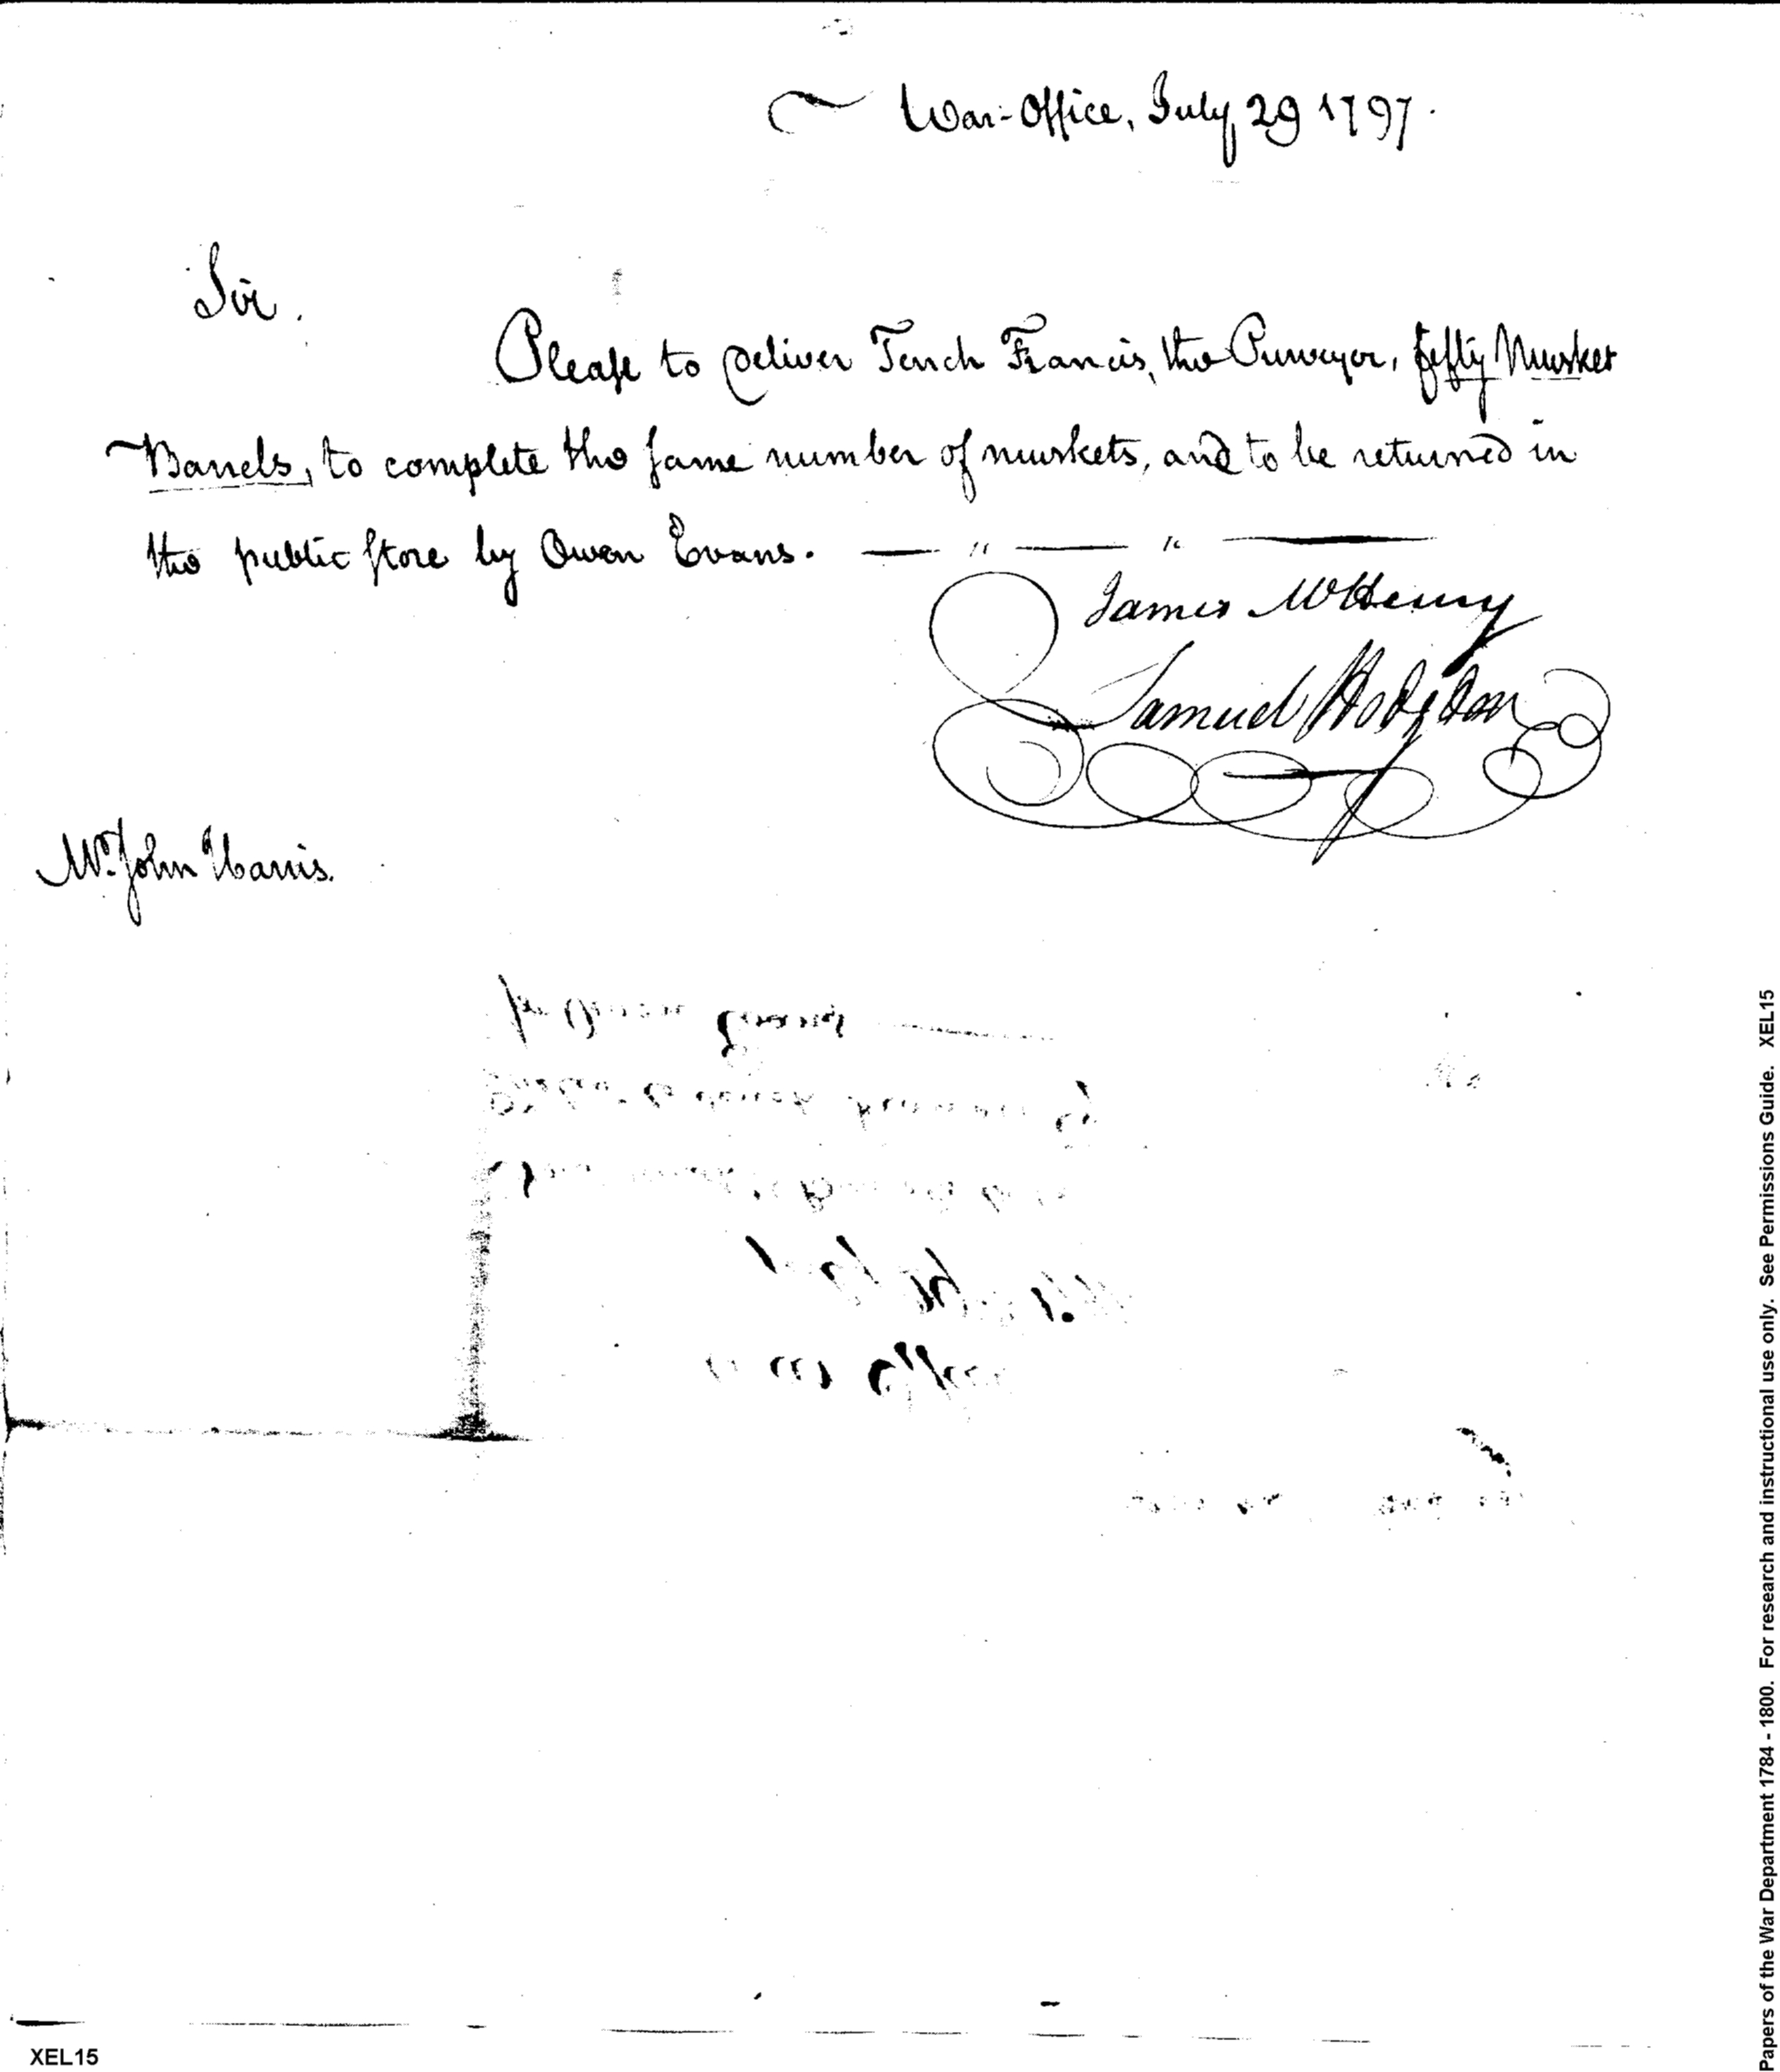 War-Office, July 29 1797.
Sir.
Please to Deliver Tench Francis, the Purveyor, fifty Musket
Barrels, to complete the same number of muskets, and to be returned in
the public store by Owen Evans. — " — " —
James McHenry
Samuel Hodgdon
Mr. John Harris.
XEL15
Papers of the War Department 1784 - 1800. For research and instructional use only. See Permissions Guide. XEL15